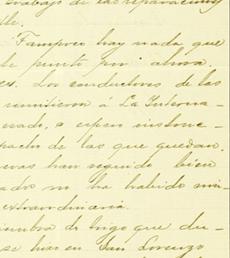 trabajo de las reparaciones
ble.
Tampoco hay nada que
te punto por ahora.
es. Los conductores de las
remitieron á La Interna-
esado, a espera instruc-
pacho de las que quedan.
vas han seguido bien
ados no ha habido no-
extraordinaria.
iembra de trigo que du-
se hace en San Lorenzo